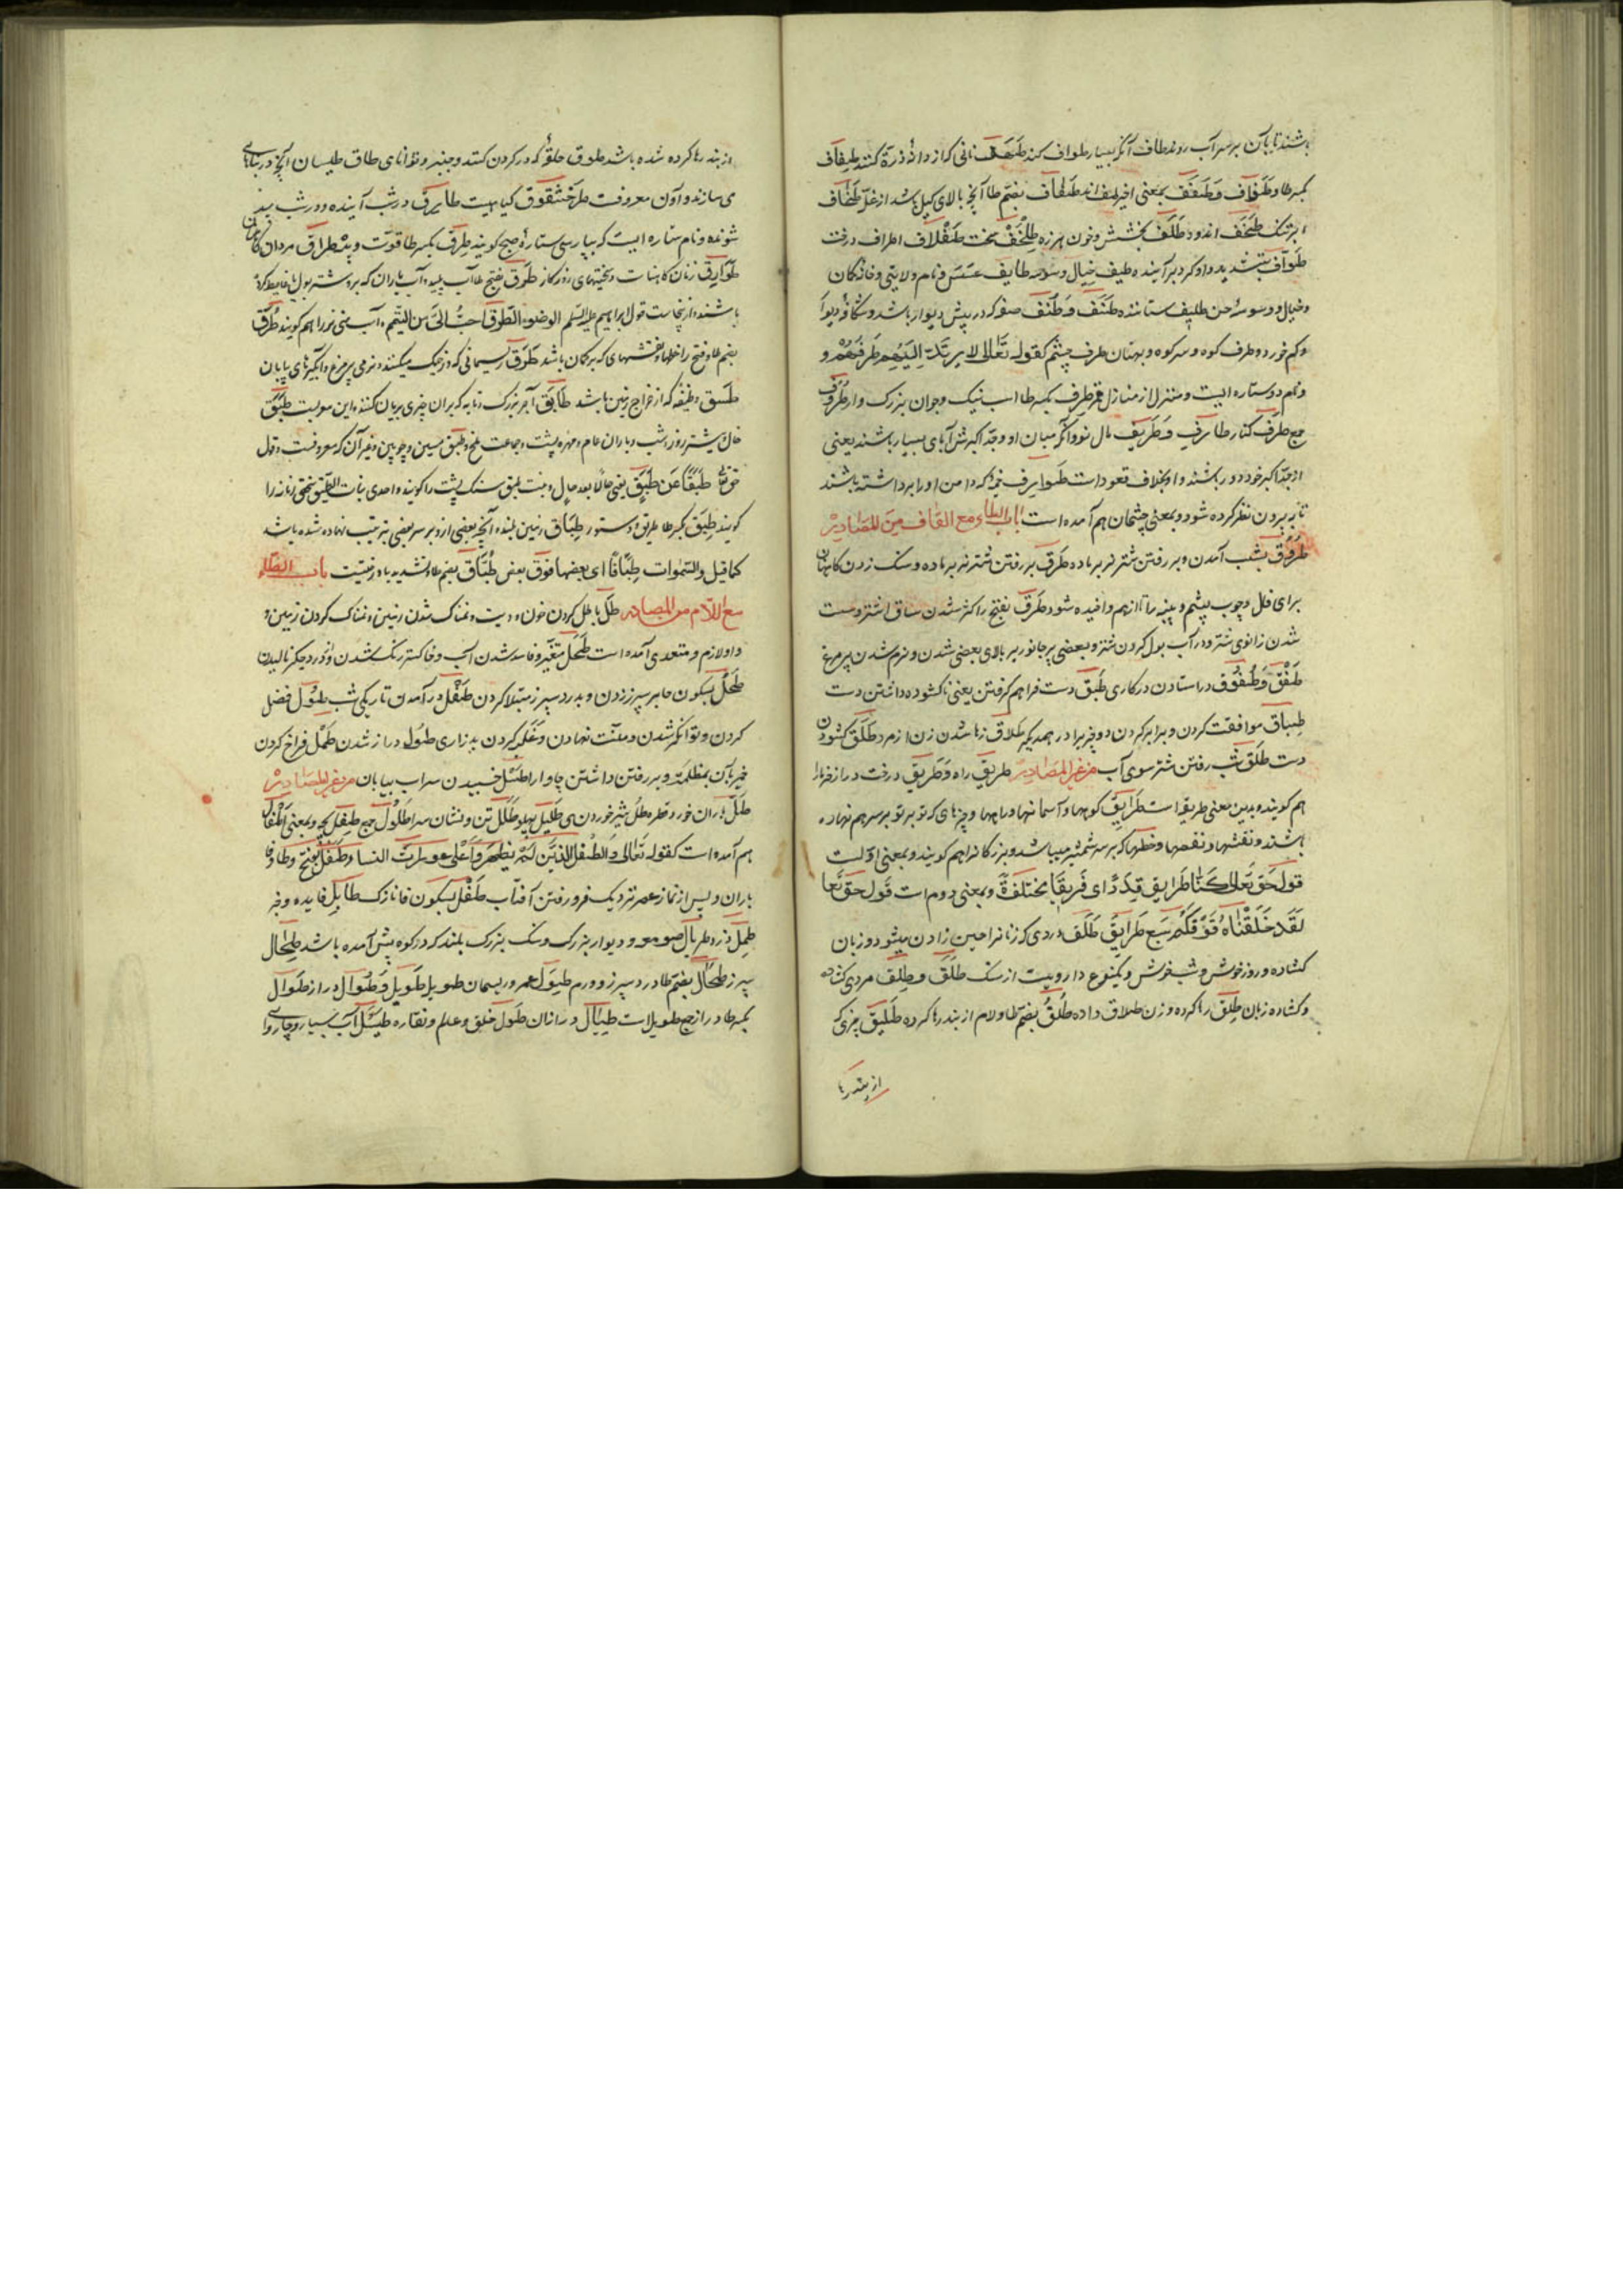 باشند تا بآن بر سر آب روند طاف آنکه بسیار طواف کند طَهَف نانی که از دانهٔ ذرة کنند طِفاف
بکسر طا و طَفاف و طَفَف بمعنی اخیر طفاف بضم طا آنچه بالای کیل باشد از غله طَخاف
ابر تنک طَخَف اندوه طَلَف بخشش و خون هرزه طِلَّخْف سخت اطراف درخت
طَوّاف بتشدید واو کرد برآینده طیف خیال و وسوسه طایف عسس و نام ولایتی و خانه کان
و خیال و وسوسهٔ جن طَنَف و طُنُف صفه که در پیش دیوار باشد
و طرف کوه و سر کوه و بهتان طرف چشم کقوله تعالی لا یرتدّ الیهم طرفهم و
و نام دو ستاره ایست و منزل از منازل قمر طِرف بکسر طا اسب نیک و جوان بزرک وار طُروف
جمع طرف کنار طارف و طریف مال نو و آنکه میان او و جدّ اکبرش آبای بسیار باشند یعنی
از جدّ اکبر خود دور باشد و او بخلاف قعود است طوارف خیمه که دامن او را برداشته باشند
تا به بیرون نظر کرده شود و بمعنی چشمان هم آمده است باب الطاء مع القاف من المصادر
طُرُوق بشب آمدن و بر رفتن شتر نر بر ماده طَرق بر رفتن شتر نر بر ماده و سنک زدن کاهنان
برای فال و چوب پشم و پنبه را تا از هم واخیده شود طَرَق بفتح را کژ شدن ساق اشتر و سست
شدن زانوی شتر و در آب بول کردن شتر و بعضی پر جانور بر بالای بعضی شدن و نرم شدن پر مرغ
طَفَق و طُفُوق در استادن در کاری طَبَق دست فراهم کرفتن یعنی ناکشوده داشتن دست
طِباق موافقت کردن و برابر کردن دو چیز را در همدیکر طَلاق رها شدن زن از مرد طَلْق کشودن
دست طَلَق شب رفتن شتر سوی آب من غیر المصادر طریق راه و طَریق درخت دراز خرما
هم کویند و بدین معنی طریقه است طَرایق کوهها و آسمانها و راهها و چیزهای که تو بر تو بر سر هم نهاده
باشند و نقشها و خطها که بر سر شمشیر میباشد و بزرکانرا هم کویند و بمعنی اول است
قول حق تعالی کنّا طرایق قددًا ای فریقًا مختلفة و بمعنی دوم است قول حق تعا
لقد خلقنا فوقکم سبع طرایق طَلْق دردی که زنانرا حین زادن میشود و زبان
کشاده و روز خوش و شب خوش و یکنوع دارویست از سنک طَلْق و طِلْق مردی کشاده
و کشاده زبان طِلْق رها کرده و زن طلاق داده طُلُق بضم طا و لام از بند رها کرده طلیق چیزی که
از بند رها
از بند رها کرده شده باشد طوق حلقهٔ که در کردن کنند و چنبر و توانای طاق طیلسان آنچه در بناهای
می سازند و آن معروفست کیاهیست طارق در شب آینده و در شب پدید
شونده و نام ستاره ایست که بپارسی ستارهٔ صبح کویند طِرق بکسر طا قوت و پیه طُرّاق مردان کاهنان
طَوارق زنان کاهنات و سختیهای روزکار طَرق بفتح طا آب پلید و آب باران که برو شتر بول و غایط کرده
باشند و از ینجاست قول ابراهیم علیه السلم الوضوء بالطرق احبّ الیّ من التیمم و آب منی نر را هم کویند طُرَق
بضم طا و فتح را خطها و نقشهای که بر کمان باشد طَرَق ریسمانی که و نرمی پر مرغ و آبکیرهای بیابان
طَسق وظیفه که از خراج زمین باشد طابق آجر بزرک و تابه که بران چیزی بریان کنند و این معربست طَبَق
حال و بیشتر روز و شب و باران عام و مهرهٔ پشت و جماعت ملخ و طبق مسین و چوبین و غیر آن که معروفست و قول
حق تعا طبقًا عن طبقٍ یعنی حالًا بعد حالٍ و بنت طبق سنک پشت را کویند و احدی بنات الطبق سختی زمانه را
کویند طِبق بکسر طا طریق و دستور طِباق زمین بلند و آنچه بعضی ازو بر سر بعضی بترتیب نهاده شده باشد
کما قیل و السموات طباقًا ای بعضها فوق بعض طُبّاق بضم طا و تشدید با درختیست باب الطاء
مع اللام من المصادر طَلّ باطل کردن خون و دیت و نمناک شدن زمین و نمناک کردن زمین و
و او لازم و متعدی آمده است طَحَل متغیر و فاسد شدن آب و خاکستر رنک شدن و از درد جکر نالیدن
طَحْل بسکون حا بر سپرز زدن و بدرد سپرز مبتلا کردن طَفَل در آمدن تاریکی شب طَوْل فضل
کردن و توانکر شدن و منّت نهادن و تکبر کردن بدزاری طُول دراز شدن طَمْل فراخ کردن
خبز بآن بمظلمة و بر رفتن داشتن چاوارا طَسل خسبیدن سراب بیابان من غیر المصادر
طَلّ باران خورد و قطره طُلّ شیر خوردن طَلیل بوریا و طَلَل تن و نشان سرا طُلول جمع طِفل بچه و بمعنی اطفال
هم آمده است کقوله تعالی و الطفل الذین لم یظهروا علی عورات النسا و طَفَل بفتح طا و فا
باران و پس از نماز عصر نزدیک فرو رفتن آفتاب طَفْل بسکون فا نازک طایل فایده و چیز
طِمل دزد طِربال صومعه و دیوار بزرک و سنک بزرک بلند کرد در کوه پیش آمده باشد طِحال
سپرز طُحال بضم طا درد سپرز و ورم طِیَل عمر و ریسمان طویل طَویل و طُوال دراز طِوال
بکسر طا دراز جمع طویلات طِیال درازان طَول خلق و عالم و نقاره طَیسَل آب بسیار و چاروای